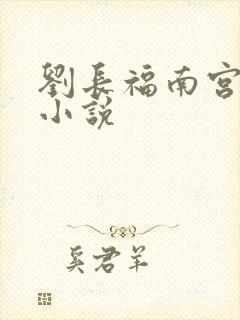 劉長福南宮
小說
奚君羊